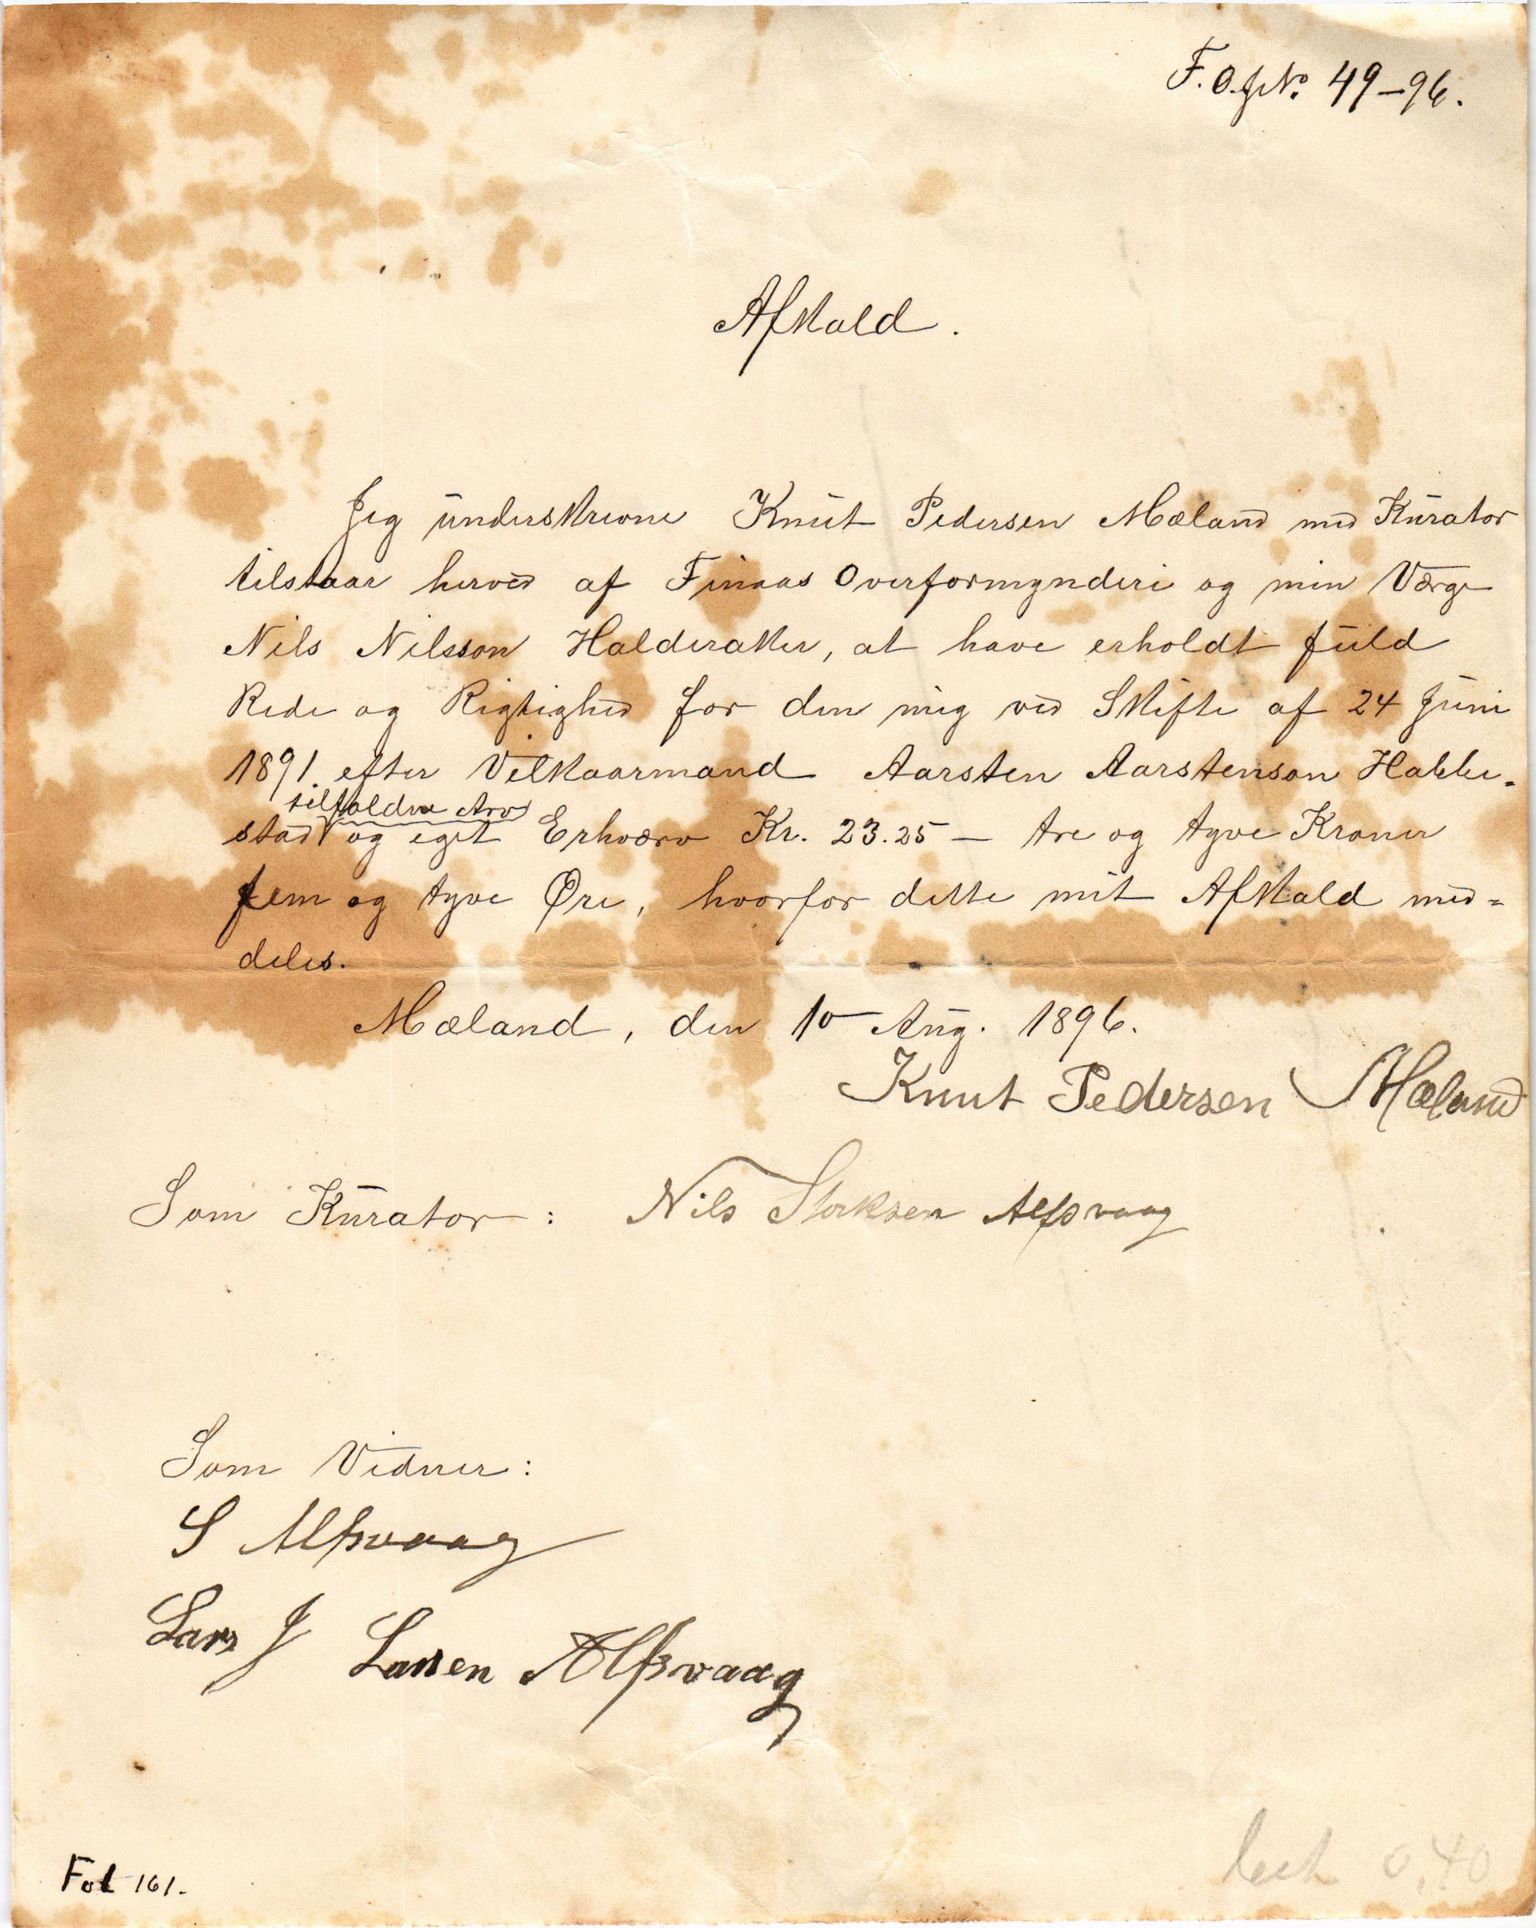 F.O.J.No. 49-96.
Afkald.
Jeg underskrevne Knut Pedersen Mæland med Kurator
tilstaar herved af Finaas Overformynderi og min Værge
Nils Nilsson Halderaker, at have erholdt fuld
Rede og Rigtighed for den mig ved Skifte af 24 Juni
1891 efter Vilkaarmand Aarsten Aarstenson Hakke-
tilfaldne Arv
stad og eget Erhverv Kr. 23.25 — tre og tyve Kroner
fem og tyve Øre, hvorfor dette mit Afkald med=
deles.
Mæland, den 10 Aug. 1896.
Knut Pedersen Mæland
Som Kurator: Nils Storksen Alfsvaag
Som Vidner:
S Alfsvaag
Lars J Larsen Alfsvaag
Fol 161.
0,40